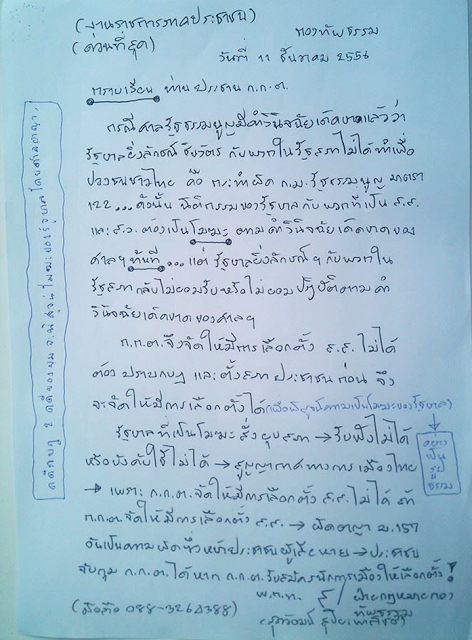 (งานราชการภาคประชาชน)
(ด่วนที่สุด)
กองทัพธรรม
วันที่ 11 ธันวาคม 2556
กราบเรียน ท่านประธาน ก.ก.ต.
กรณีศาลรัฐธรรมนูญมีคำวินิจฉัยเด็ดขาดแล้วว่า
รัฐบาลยิ่งลักษณ์ ชินวัตร กับพวกในรัฐสภาไม่ได้ทำเพื่อ
ปวงชนชาวไทย คือ กระทำผิด ก.ม. รัฐธรรมนูญ มาตรา
122... ดังนั้น นิติกรรมของรัฐบาลกับพวกที่เป็น ส.ส.
และ ส.ว. ต้องเป็นโมฆะ ตามคำวินิจฉัยเด็ดขาดของ
ศาลฯ ทันที... แต่ รัฐบาลยิ่งลักษณ์ฯ กับพวกใน
รัฐสภา กลับไม่ยอมรับหรือไม่ยอมปฏิบัติตามคำ
วินิจฉัยเด็ดขาดของศาลฯ
ก.ก.ต. จึงจัดให้มีการเลือกตั้ง ส.ส. ไม่ได้
ต้องปราบกบฏ และตั้งสภาประชาชนก่อน จึง
จะจัดให้มีการเลือกตั้งได้ (เพื่อพิสูจน์ความเป็นโมฆะของรัฐบาล)
อย่าง
เป็น
รูป
ธรรม
รัฐบาลที่เป็นโมฆะ สั่งยุบสภา → รับฟังไม่ได้
หรือบังคับใช้ไม่ได้ → สูญญากาศทางการเมืองไทย
→ เพราะ ก.ก.ต. จัดให้มีการเลือกตั้ง ส.ส. ไม่ได้ ถ้า
ก.ก.ต. จัดให้มีการเลือกตั้ง ส.ส. → ผิดอาญา ม.157
อันเป็นความผิดซึ่งหน้าประชาชนผู้เสียหาย → ประชาชน
จับกุม ก.ก.ต. ได้หาก ก.ก.ต. รับสมัครนักการเมืองให้เลือกตั้ง!
พ.ต.ท.
ฝ่ายกฎหมายกอง
ทัพธรรม
(มือถือ 088-3264388)
คดีกบฏ 2 คดีของผม จะพิสูจน์โมฆะของรัฐบาลโดยศาลอาญา.